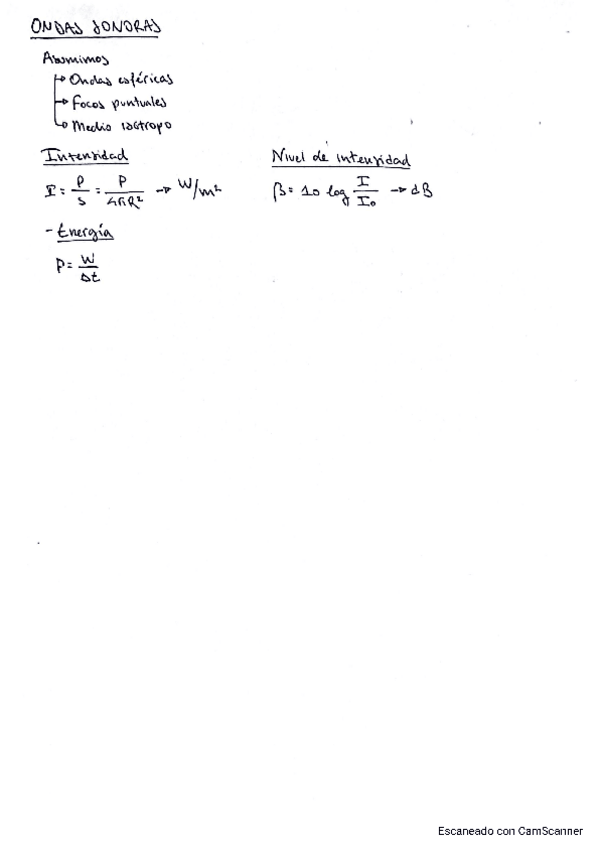 ONDAS SONORAS
Asumimos
→ Ondas esféricas
→ Focos puntuales
→ Medio isótropo
Intensidad
I = P/S = P/4πR² → W/m²
Nivel de intensidad
β = 10 log I/I₀ → dB
- Energía
P = W/Δt
Escaneado con CamScanner